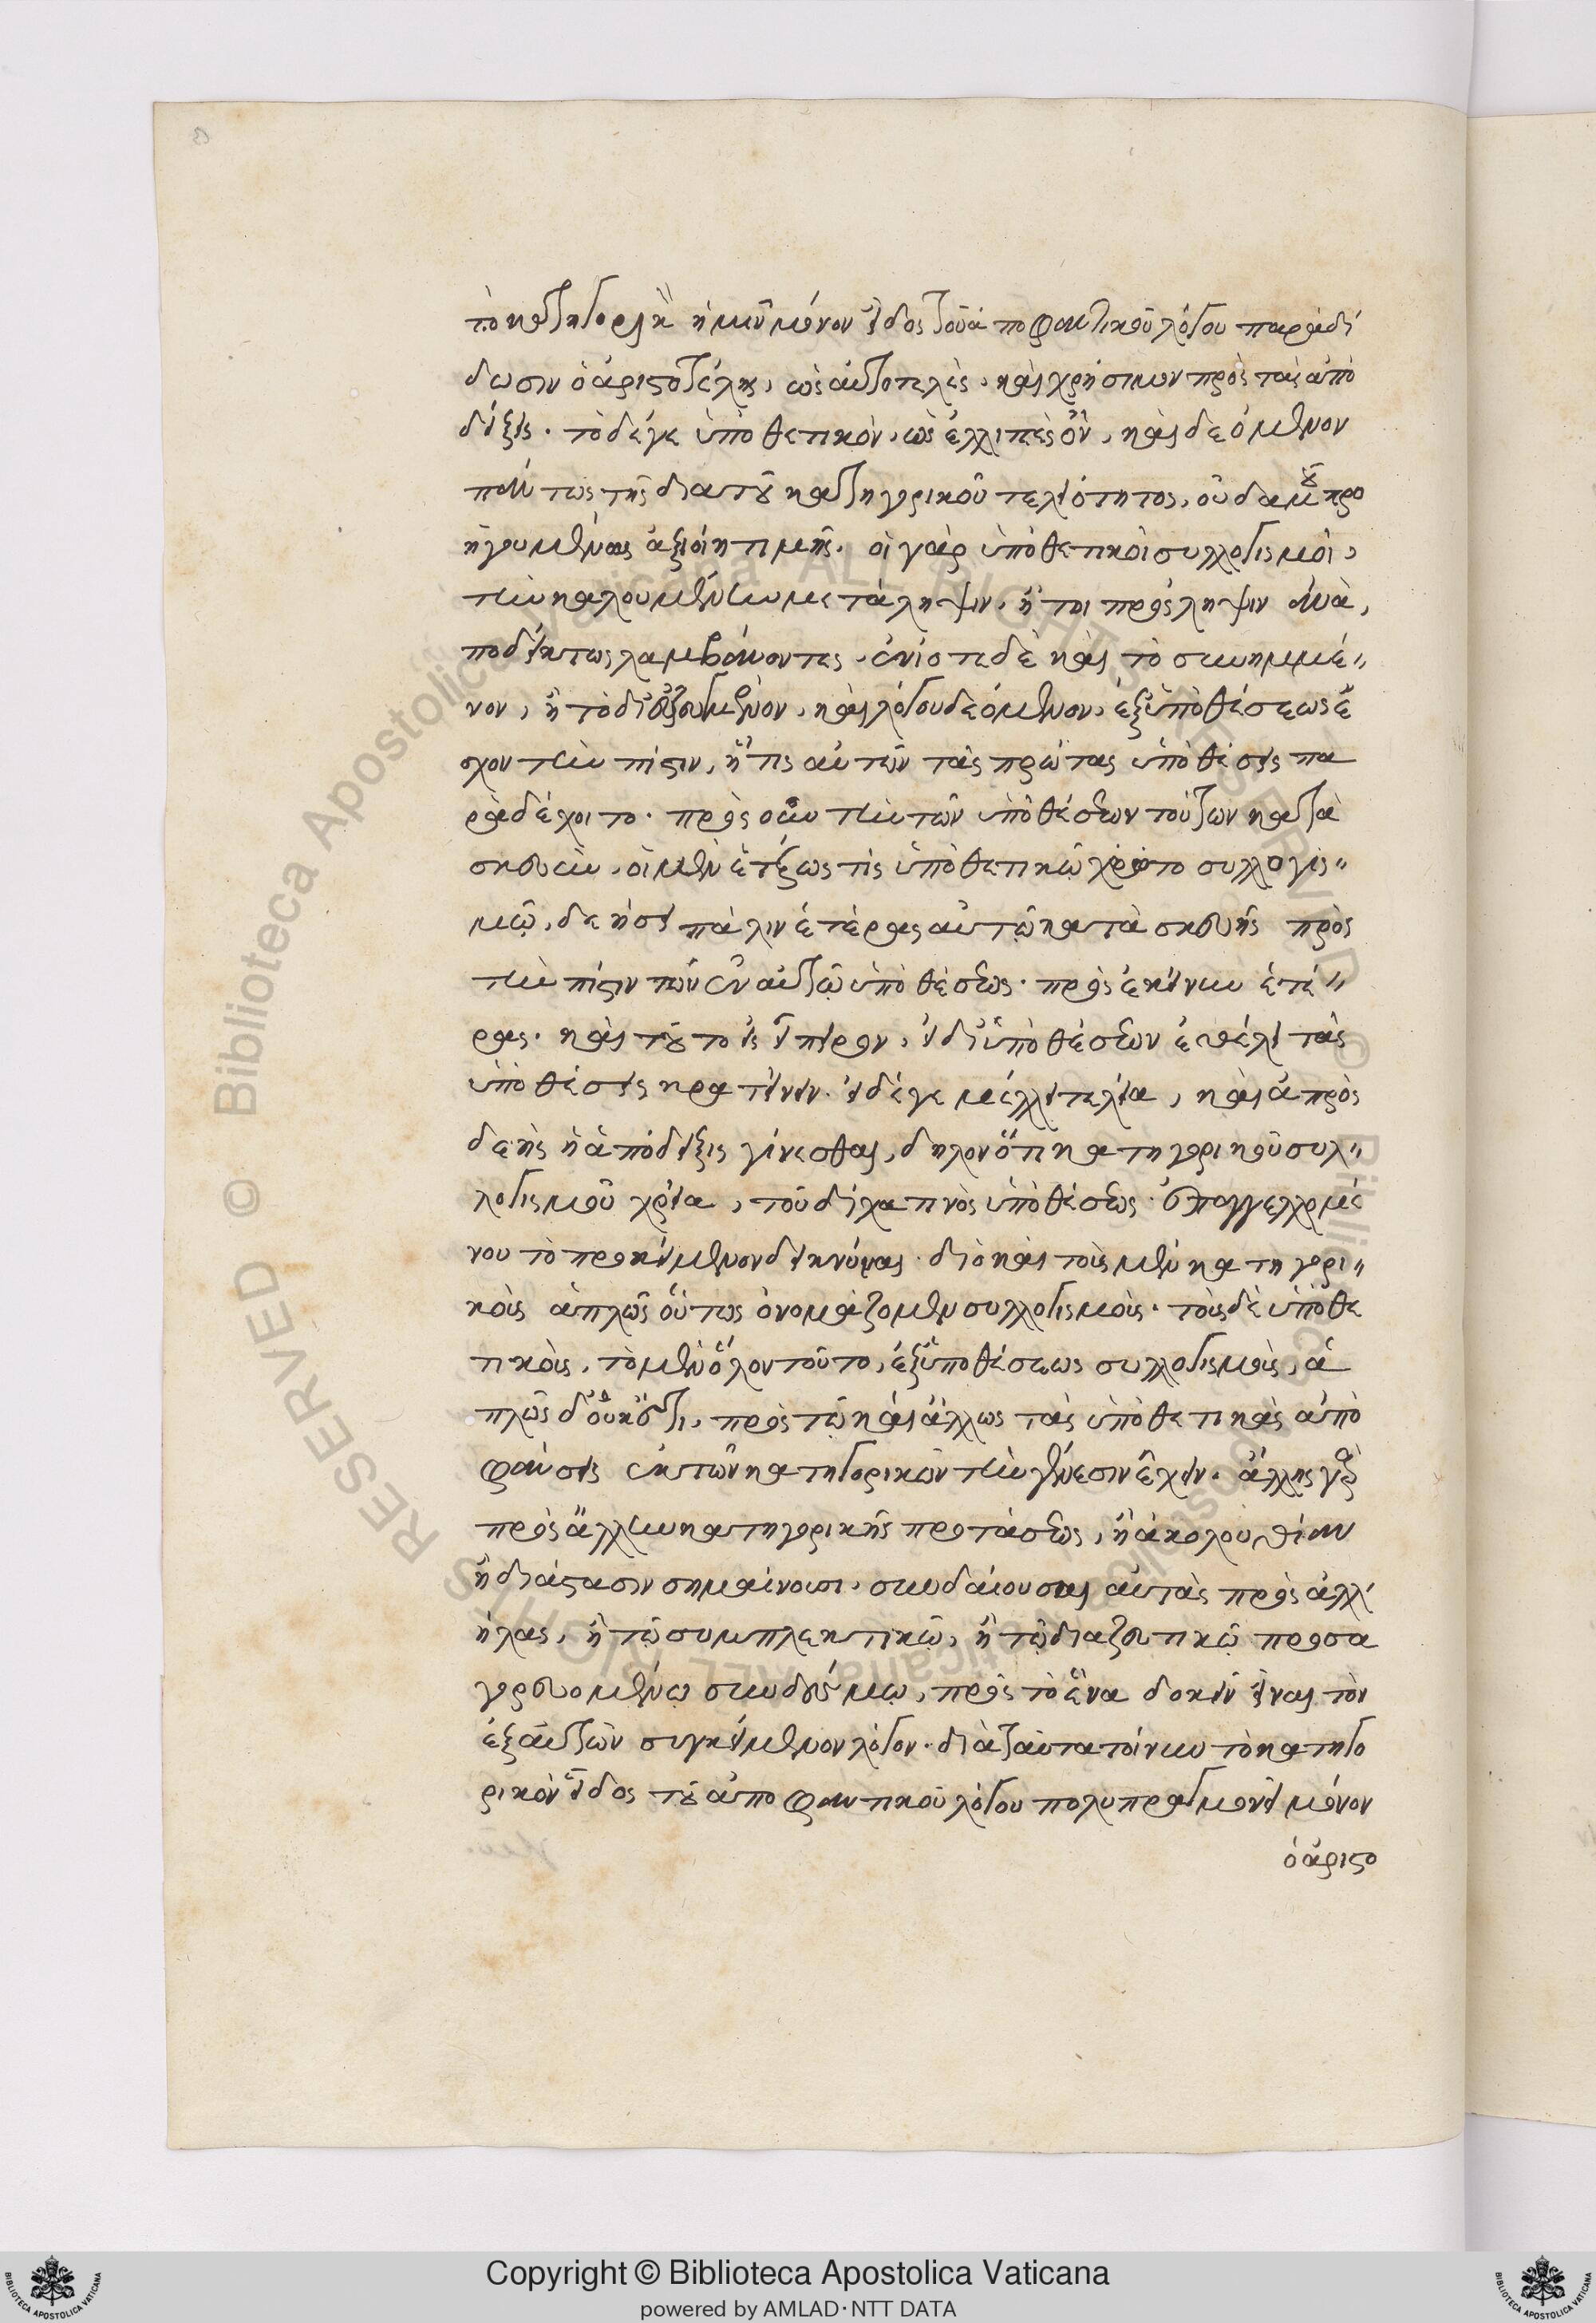 τὸ κατηγορικὸν ἡμῖν μόνον εἶδος τοῦ ἀποφαντικοῦ λόγου παραδί
δωσιν ὁ ἀριστοτέλης, ὡς αὐτοτελὲς, καὶ χρήσιμον πρὸς τὰς ἀπο
δείξεις. τὸ δέ γε ὑποθετικὸν, ὡς ἐλλιπὲς ὂν, καὶ δεόμενον
πάντως τῆς διὰ τοῦ κατηγορικοῦ τελειότητος, οὐδαμοῦ προ
ηγουμένως ἀξιοῖ ητιμῆς. οἱ γὰρ ὑποθετικοὶ συλλογισμοὶ,
τὴν καλουμένην μετάληψιν, ἤτοι πρόσληψιν ἀνα
ποδείκτως λαμβάνοντες, ἐνίοτε δὲ καὶ τὸ συνημμέ〃
νον, ἢ τὸ διεζευγμένον, καὶ λόγου δεόμενον, ἐξ ὑποθέσεως ἔ
σχον τὴν πίστιν, ἤ τις αὐτῶν τὰς πρώτας ὑποθέσεις πα
ραδέχοιτο. πρὸς οὖν τὴν τῶν ὑποθέσεων τούτων κατα
σκευὴν, εἰ μὲν ἑτέρως τις ὑποθετικῷ χρῷτο συλλογισ〃
μῷ, δεήσει πάλιν ἑτέρας αὐτῷ κατασκευῆς πρὸς
τὴν πίστιν τῶν ἐν αὐτῷ ὑποθέσεως. πρὸς ἐκείνην ἑτέ〃
ρας. καὶ τοῦτο εἰς ἄπειρον, εἰ δι' ὑποθέσεων ἐθέλει τὰς
ὑποθέσεις κρατύνειν. εἰ δέ γε μέλλει τελεία, καὶ ἀπροσ
δεὴς ἡ ἀπόδειξις γίνεσθαι, δῆλον ὅτι κατηγορικοῦ συλ〃
λογισμοῦ χρεία, τοῦ δίχα τινὸς ὑποθέσεως ἐπαγγελλομέ
νου τὸ προκείμενον δεικνύναι. διὸ καὶ τοὺς μὲν κατηγορι〃
κοὺς ἁπλῶς οὕτως ὀνομάζομεν συλλογισμοὺς. τοὺς δὲ ὑποθε
τικοὺς, τὸ μὲν ὅλον τοῦτο, ἐξ ὑποθέσεως συλλογισμοὺς, ἁ
πλῶς δ' οὐκέτι, πρὸς τῷ καὶ ἄλλως τὰς ὑποθετικὰς ἀπο
φάνσεις ἐκ τῶν κατηγορικῶν τὴν γένεσιν ἔχειν. ἄλλης γὰρ
πρὸς ἄλλην κατηγορικῆς προτάσεως, ἢ ἀκολουθίαν
ἢ διάστασιν σημαίνουσι, συνδέουσαι αὐτὰς πρὸς ἀλλ
ήλας, ἢ τῷ συμπλεκτικῷ, ἢ τῷ διαζευκτικῷ προσα
γορευομένῳ συνδέσμῳ, πρὸς τὸ ἕνα δοκεῖν εἶναι τὸν
ἐξ αὐτῶν συγκείμενον λόγον. διὰ ταῦτα τοίνυν τὸ κατηγο
ρικὸν εἶδος τοῦ ἀποφαντικοῦ λόγου πολυπραγμονεῖ μόνον
ὁ ἀριστο
Copyright © Biblioteca Apostolica Vaticana
powered by AMLAD·NTT DATA